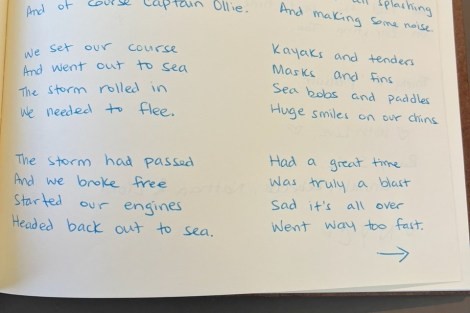 And of course Captain Ollie.
We set our course
And went out to sea
The storm rolled in
We needed to flee.
The storm had passed
And we broke free
Started our engines
Headed back out to sea.
splashing
And making some noise.
Kayaks and tenders
Masks and fins
Sea bobs and paddles
Huge smiles on our chins
Had a great time
Was truly a blast
Sad it's all over
Went way too fast.